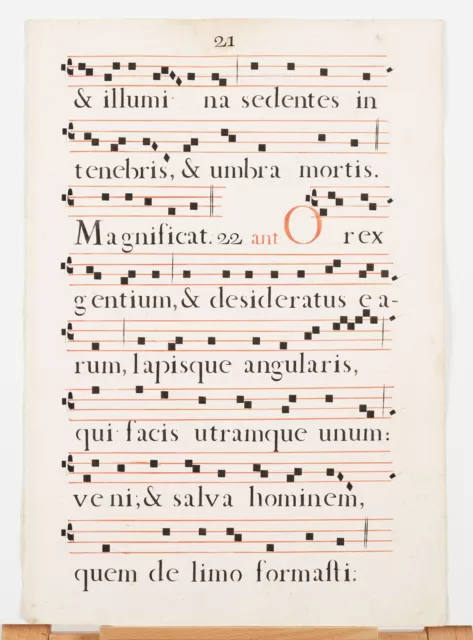 21
& illumi na sedentes in
tenebris, & umbra mortis.
Magnificat. 22 ant O rex
gentium, & desideratus ea-
rum, lapisque angularis,
qui facis utramque unum:
veni, & salva hominem,
quem de limo formasti: